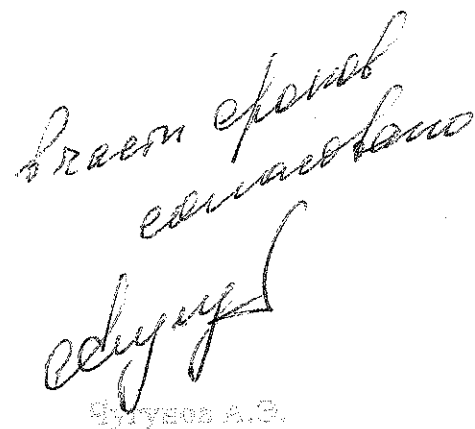 в части сроков
согласовано
Чугунов А.Э.